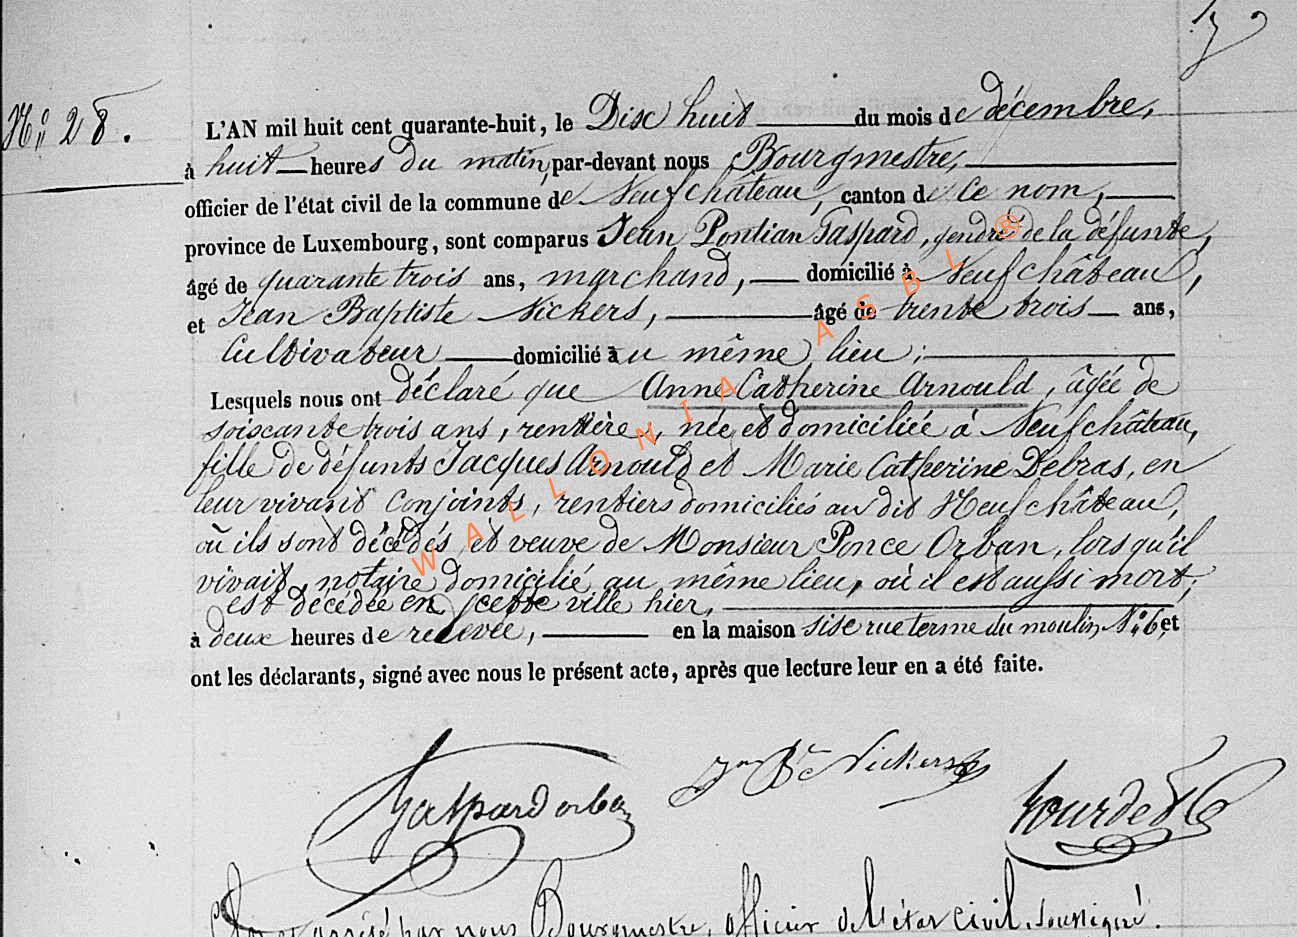 N° 28.
L'AN mil huit cent quarante-huit, le Dix huit du mois de décembre,
à huit heures du matin, par-devant nous Bourgmestre,
officier de l'état civil de la commune de Neufchâteau, canton de ce nom,
province de Luxembourg, sont comparus Jean Pontian Gaspard, gendre de la défunte,
âgé de quarante trois ans, marchand, domicilié à Neufchâteau,
et Jean Baptiste Nickers, âgé de trente trois ans,
Cultivateur domicilié au même lieu;
Lesquels nous ont déclaré que Anne Catherine Arnould, âgée de
soixante trois ans, rentière, née et domiciliée à Neufchâteau,
fille de défunts Jacques Arnould et Marie Catherine Debras, en
leur vivant conjoints, rentiers domiciliés au dit Neufchâteau,
où ils sont décédés, et veuve de Monsieur Ponce Orban, lorsqu'il
vivait, notaire domicilié au même lieu, où il est aussi mort,
est décédée en cette ville hier,
à deux heures de relevée, en la maison sise rue terme du moulin, N° 6, et
ont les déclarants, signé avec nous le présent acte, après que lecture leur en a été faite.
Gaspard orban
Jn Bte Nickers
arrêté par nous Bourgmestre, officier de l'état civil soussigné.
WALLONIA ASBL ®